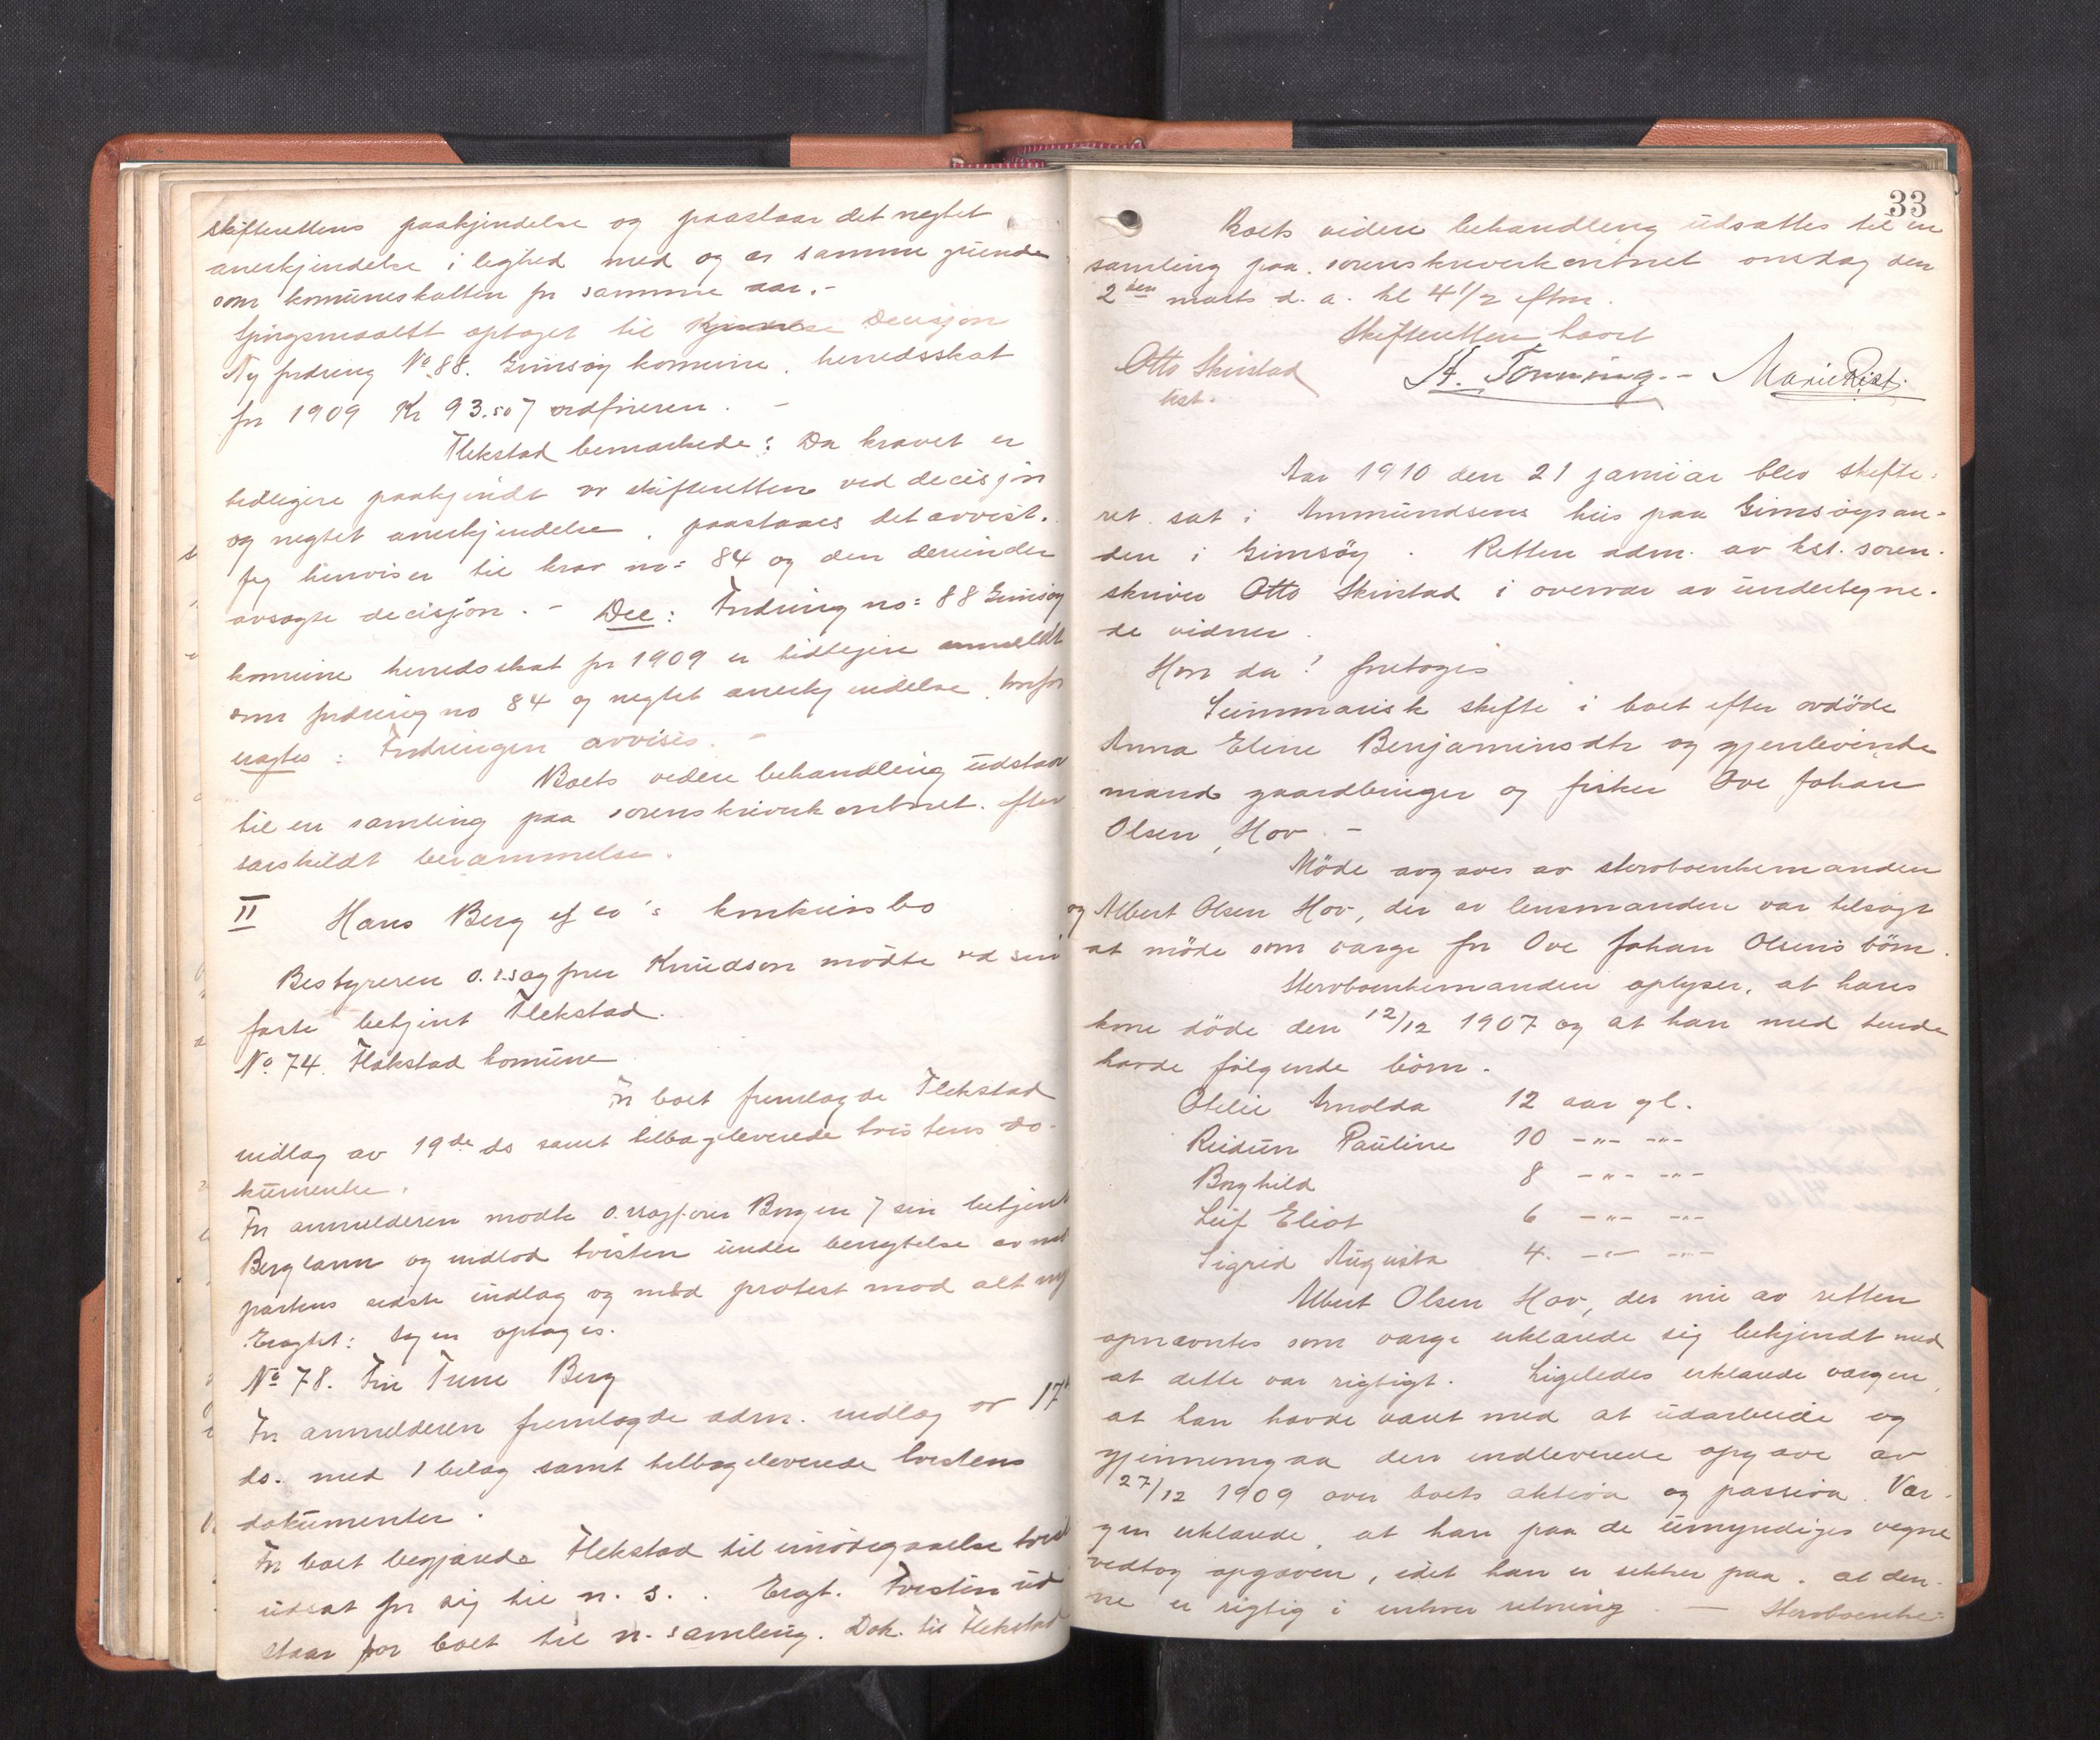 skifterettens paakjendelse og paastaar det negtet
anerkjendelse i lighed med og av samme grunde
som komuneskatten for samme aar. -
Spørgsmaalet optaget til Kjendelse Decisjon
Ny fordring No 88. Gimsøy komune, herredsskat
for 1909 Kr 93.50 / ordføreren. -
Flekstad bemærkede: Da kravet er
tidligere paakjendt av skifteretten ved decisjon
og negtet anerkjendelse, paastaaes det avvist.
Jeg henviser til krav no: 84 og den derunder
avsagte decisjon. - Dec: Fordring no: 88 Gimsøy
komune herredsskat for 1909 er tidligere anmeldt
som fordring no 84 og negtet anerkjendelse, hvorfor
eragtes: Fordringen avvises. -
Boets videre behandling udstaar
til en samling paa sorenskriverkontoret efter
særskildt berammelse.
II Hans Berg & co's konkursbo
Bestyreren o.r.sagfører Knudsen mødte ved sin
faste betjent Flekstad.
No 74. Flakstad komune
For boet fremlagde Flekstad
indlæg av 19de ds samt tilbageleverede tvistens do-
kumenter.
For anmelderen mødte o.rsagfører Borgen / sin betjent
Berglann og indlod tvisten under benegtelse av mot
partens sidste indlæg og med protest mod alt nyt
Eragtet: Sagen optages.
No 78. Fru Trine Berg
For anmelderen fremlagde adm. indlæg av 17
ds. med 1 bilag samt tilbageleverede tvistens
dokumenter.
For boet begjærede Flekstad til imødegaaelse tvist
udsat for sig til n. s. . Eragt. Tvisten ud
staar for boet til n. samling. Dok. til Flekstad
33
Boets videre behandling udsattes til en
samling paa sorenskriverkontoret onsdag den
2den marts d. a. kl 4 1/2 eftm.
Skifteretten hævet
Otto Skirstad
kst.
H. Tonning. - Marie Rist.
Aar 1910 den 21 januar blev skifte-
ret sat i Ammundsens hus paa Gimsøysan-
den i Gimsøy. Retten adm. av kst. soren-
skriver Otto Skirstad i overvær av undertegne-
de vidner.
Hvor da! foretoges
Summarisk skifte i boet efter avdøde
Anna Eline Benjaminsdtr og gjenlevende
mand gaardbruger og fisker Ove Johan
Olsen, Hov. -
Møde avgaves av stervboenkemanden
og Albert Olsen Hov, der av lensmanden var tilsagt
at møde som værge for Ove Johan Olsens børn.
Stervboenkemanden oplyser, at hans
kone døde den 12/12 1907 og at han med hende
havde følgende børn.
Otelie Arnolda 12 aar gl.
Reidun Pauline 10 -"- -"-
Borghild 8 -"- -"-
Leif Eliot 6 -"- -"-
Sigrid Augusta 4. -"- -"-
Albert Olsen Hov, der nu av retten
opnævntes som værge erklærede sig bekjendt med
at dette var rigtigt. Ligeledes erklærede værgen,
at han havde været med at udarbeide og
gjennemgaa den indleverede opgave av
27/12 1909 over boets aktiva og passiva. Vær-
gen erklærede, at han paa de umyndiges vegne
vedtog opgaven, idet han er sikker paa, at den-
ne er rigtig i enhver retning. - Stervboenke-